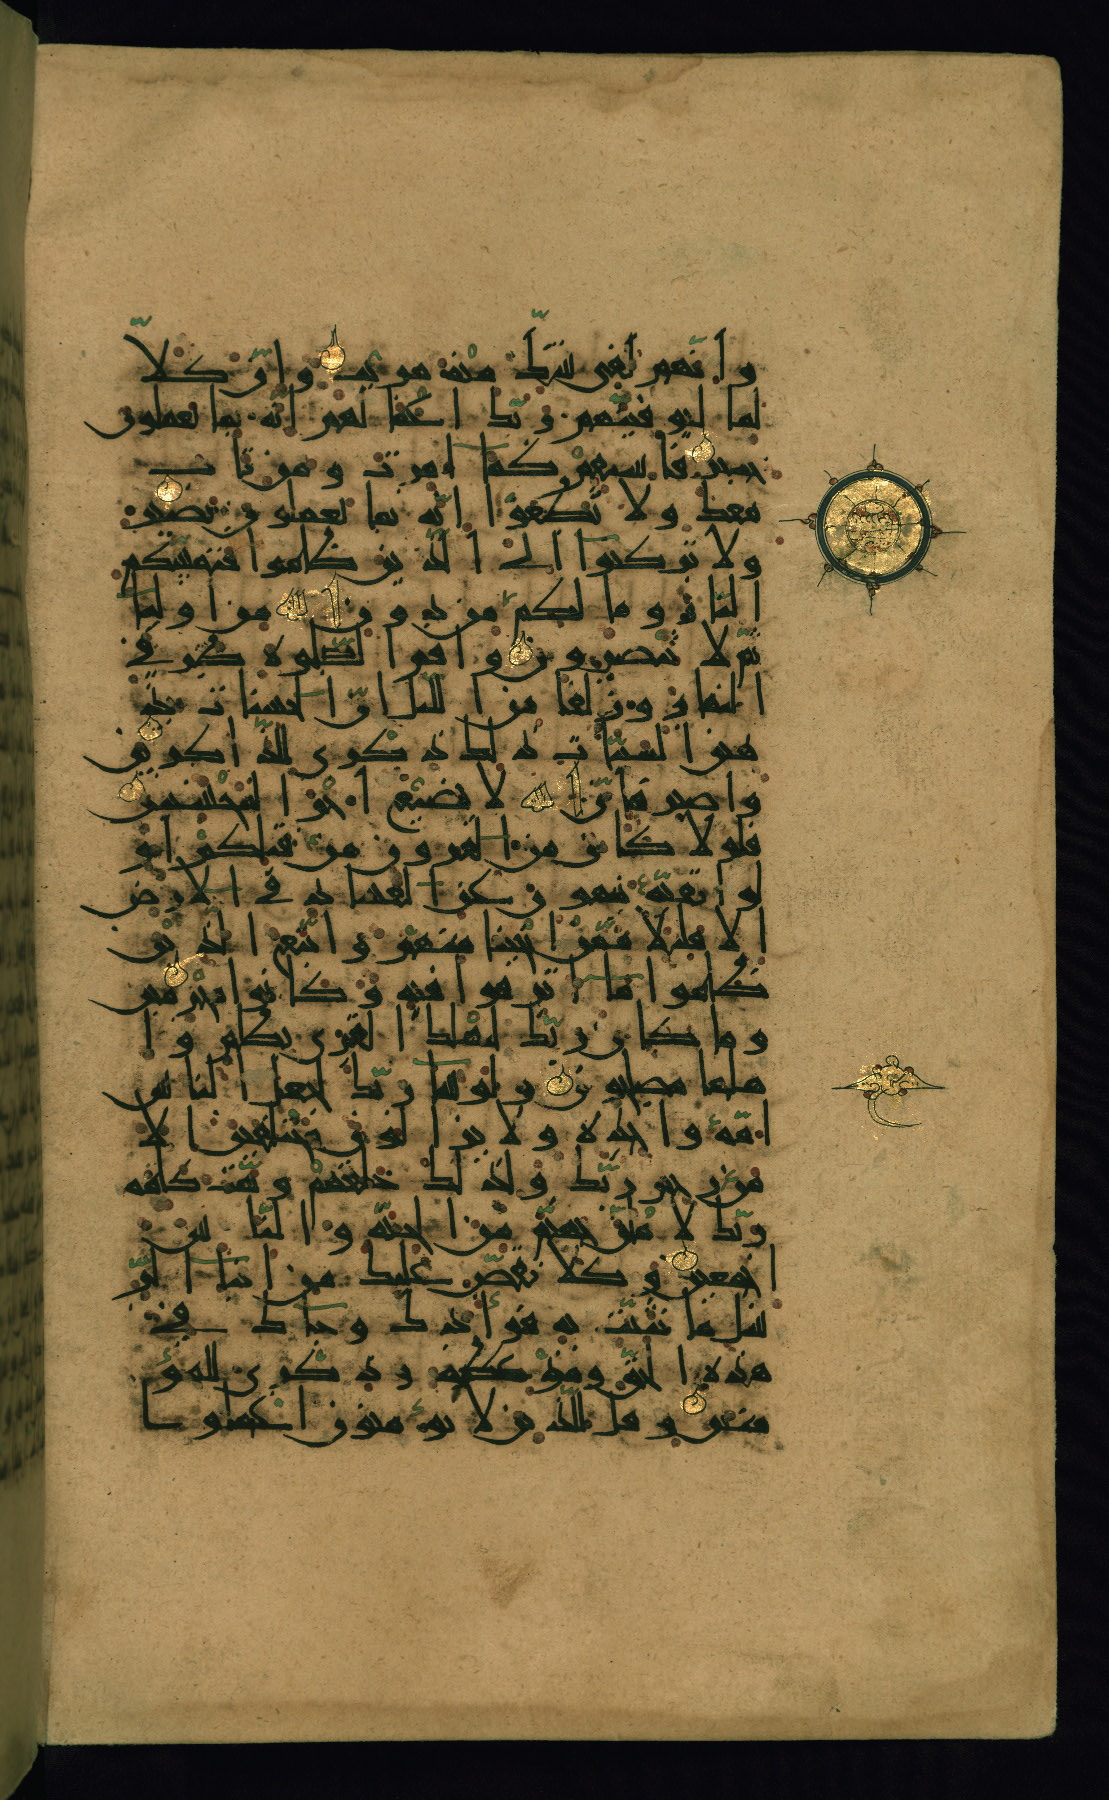 وانهم لفى شك منه مريب وان كلا
لما ليوفينهم ربك اعملهم انه بما يعملون
خبير فاستقم كما امرت ومن تاب
معك ولا تطغوا انه بما تعملون بصير
ولا تركنوا الى الذين ظلموا فتمسكم
النار وما لكم من دون الله من اوليا
ثم لا تنصرون واقم الصلوه طرفى
النهار وزلفا من اليل ان الحسنات يذ
هبن السيات ذلك ذكرى للذاكرين
واصبر فان الله لا يضيع اجر المحسنين
فلولا كان من القرون من قبلكم او
لوا بقيه ينهون عن الفساد فى الارض
الا قليلا ممن انجينا منهم واتبع الذين
ظلموا ما اترفوا فيه وكانوا مجرمين
وما كان ربك ليهلك القرى بظلم وا
هلها مصلحون ولو شا ربك لجعل الناس
امه واحده ولا يزالون مختلفين الا
من رحم ربك ولذلك خلقهم وتمت كلمه
ربك لاملن جهنم من الجنه والناس
اجمعين وكلا نقص عليك من انبا الر
سل ما نثبت به فوادك وجاك فى
هذه الحق وموعظه وذكرى للمو
منين وقل للذين لا يومنون اعملوا